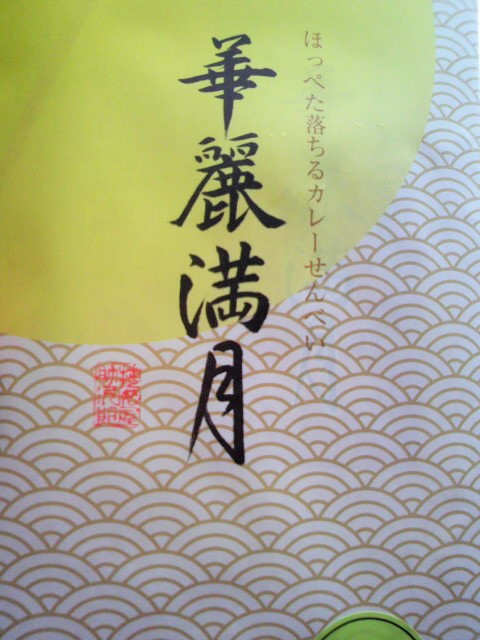 ほっぺた落ちるカレーせんべい
華麗満月